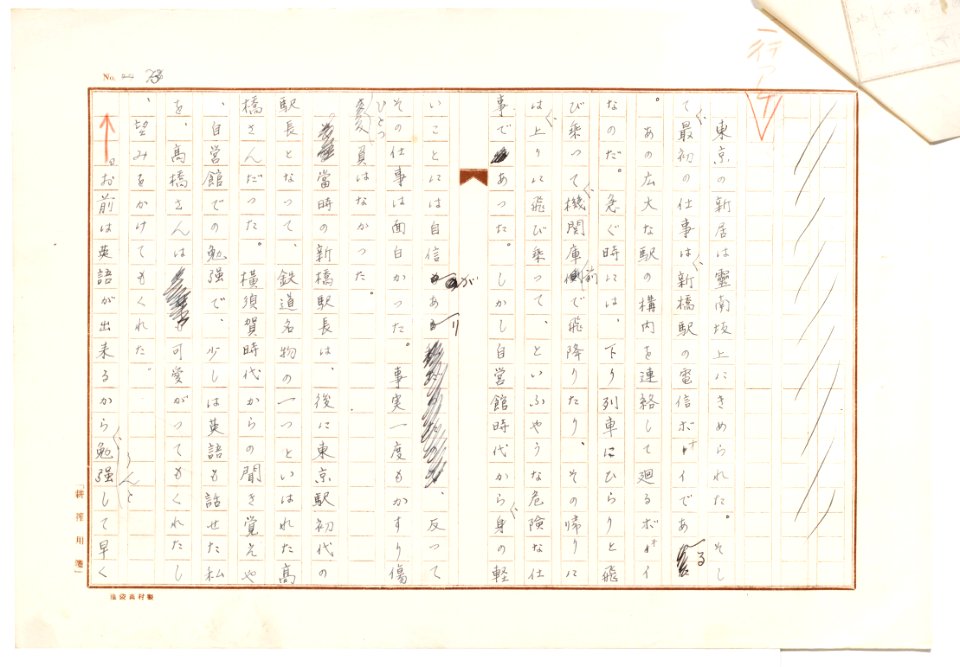 No. 
一行アケ
東京の新居は靈南坂上にきめられた。そし
て最初の仕事は新橋駅の電信ボーイである
。あの広大な駅の構内を連絡して廻るボーイ
なのだ。急ぐ時には、下り列車にひらりと飛
び乘って機関庫前で飛降りたり、その帰りに
は上りに飛び乘って、といふやうな危険な仕
事であった。しかし自営館時代から身の軽
いことには自信があり、反って
その仕事は面白かった。事実一度もかすり傷
ひとつ負はなかった。
當時の新橋駅長は、後に東京駅初代の
駅長となって、鉄道名物の一つといはれた高
橋さんだった。横須賀時代からの聞き覚えや
、自営館での勉強で、少しは英語も話せた私
を、高橋さんは可愛がってもくれたし
、望みをかけてもくれた。
。お前は英語が出来るからうんと勉強して早く